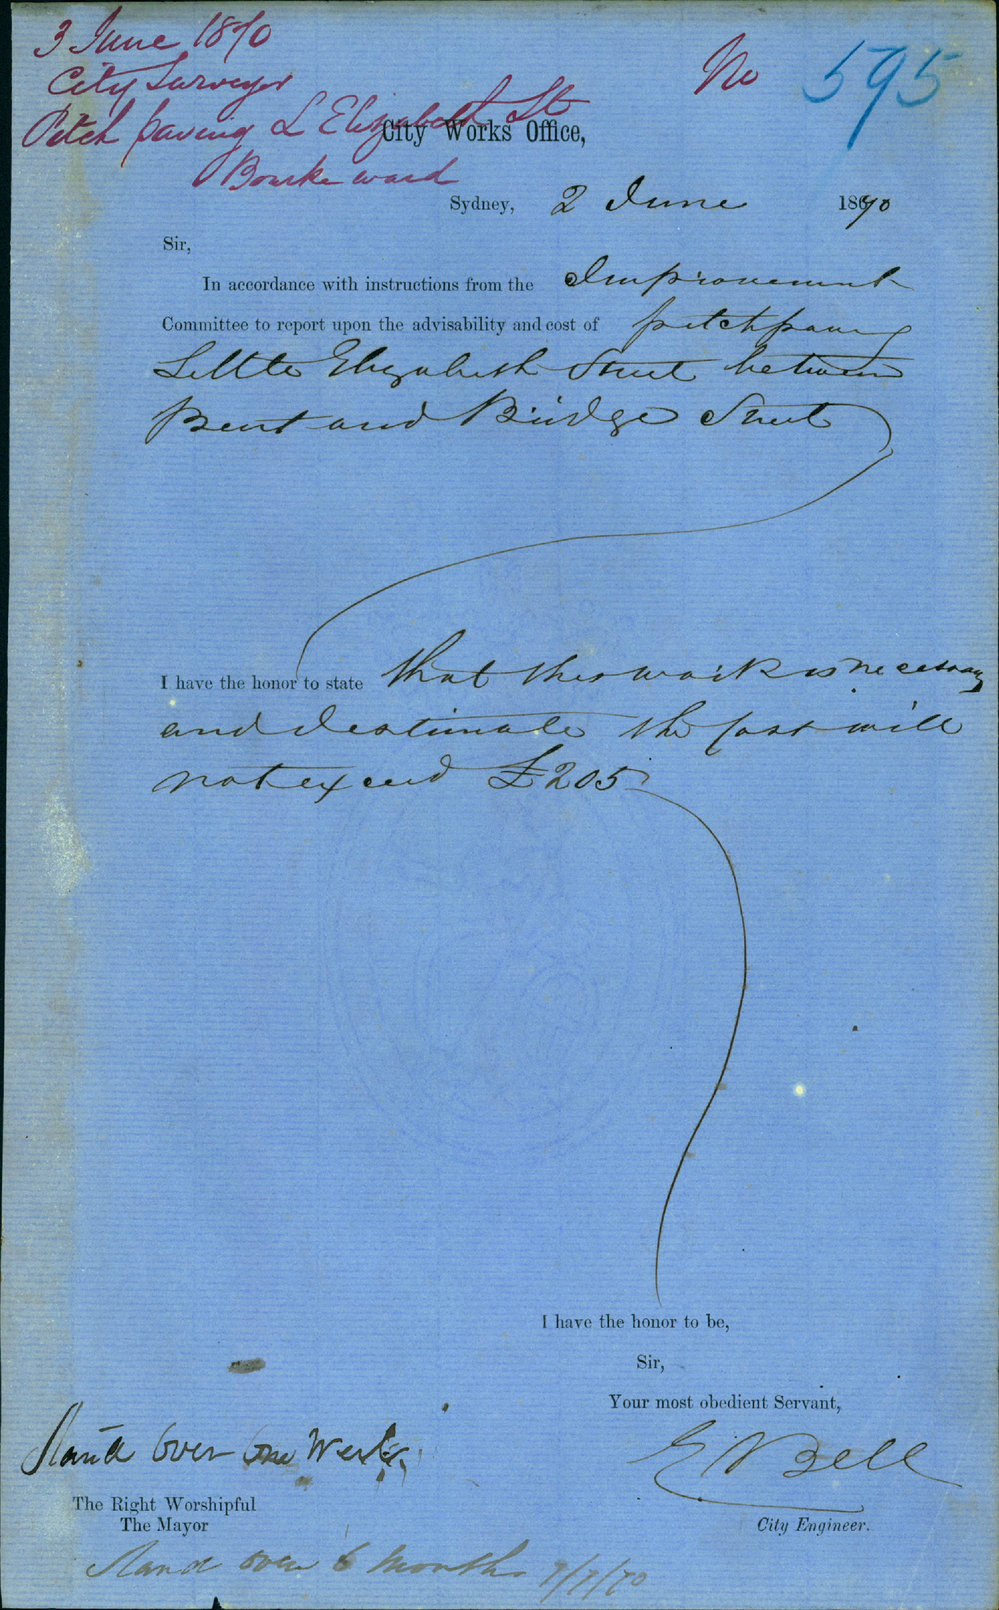 3 June 1870
City Surveyor
No 595
Pitch paving L Elizabeth St
Bourke ward
City Works Office,
Sydney, 2 June 1870
Sir,
In accordance with instructions from the Improvement
Committee to report upon the advisability and cost of pitchpaving
Little Elizabeth Street between
Bent and Bridge Street
I have the honor to state that this work is necessary
and I estimate the cost will
not exceed £205
I have the honor to be,
Sir,
Your most obedient Servant,
Stand over One Week
E Bell
The Right Worshipful
The Mayor
City Engineer.
Stand over 6 months 7/7/70